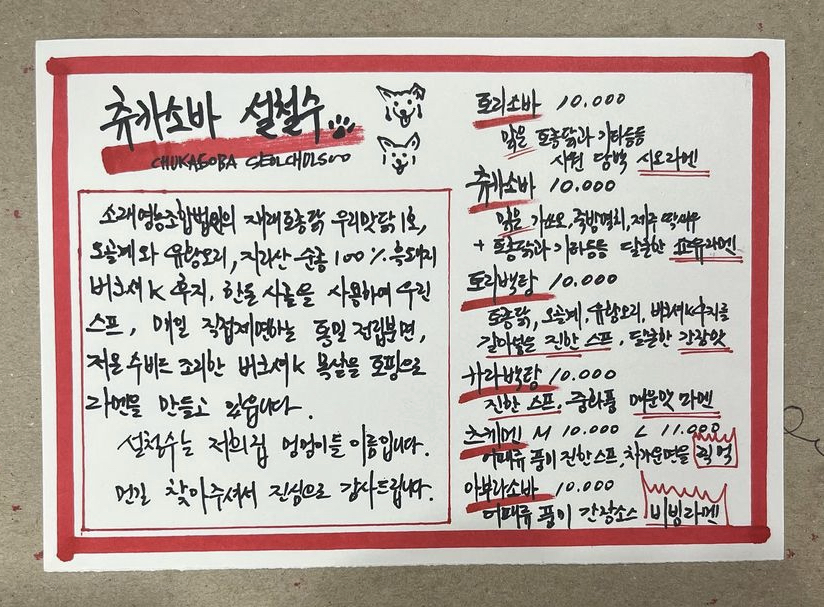 츄카소바 설철수
CHUKASOBA SEOLCHOLSOO
소래영농조합법인의 재래토종닭 우리맛닭1호,
오골계와 유황오리, 지리산 순종 100% 흑돼지
버크셔K 후지, 한돈 사골을 사용하여 우린
스프, 매일 직접제면하는 통밀 전립분면,
저온 수비드 조리한 버크셔K 목살을 토핑으로
라멘을 만들고 있습니다.
설철수는 저희집 멍멍이들 이름입니다.
먼길 찾아주셔서 진심으로 감사드립니다.
토리소바 10.000
맑은 토종닭과 기타등등
시원 담백 시오라멘
츄카소바 10.000
맑은 가쓰오, 죽방멸치, 제주 딱새우
+ 토종닭과 기타등등 달솔한 쇼유라멘
토리백탕 10.000
토종닭, 오골계, 유황오리, 버크셔K후지를
갈아넣은 진한 스프, 달솔한 간장맛
카라백탕 10.000
진한 스프, 중화풍 매운맛 라멘
츠케멘 M 10.000 L 11.000
어패류 풍미 진한스프, 차가운면을 찍먹
아부라소바 10.000
어패류 풍미 간장소스 비빔라멘